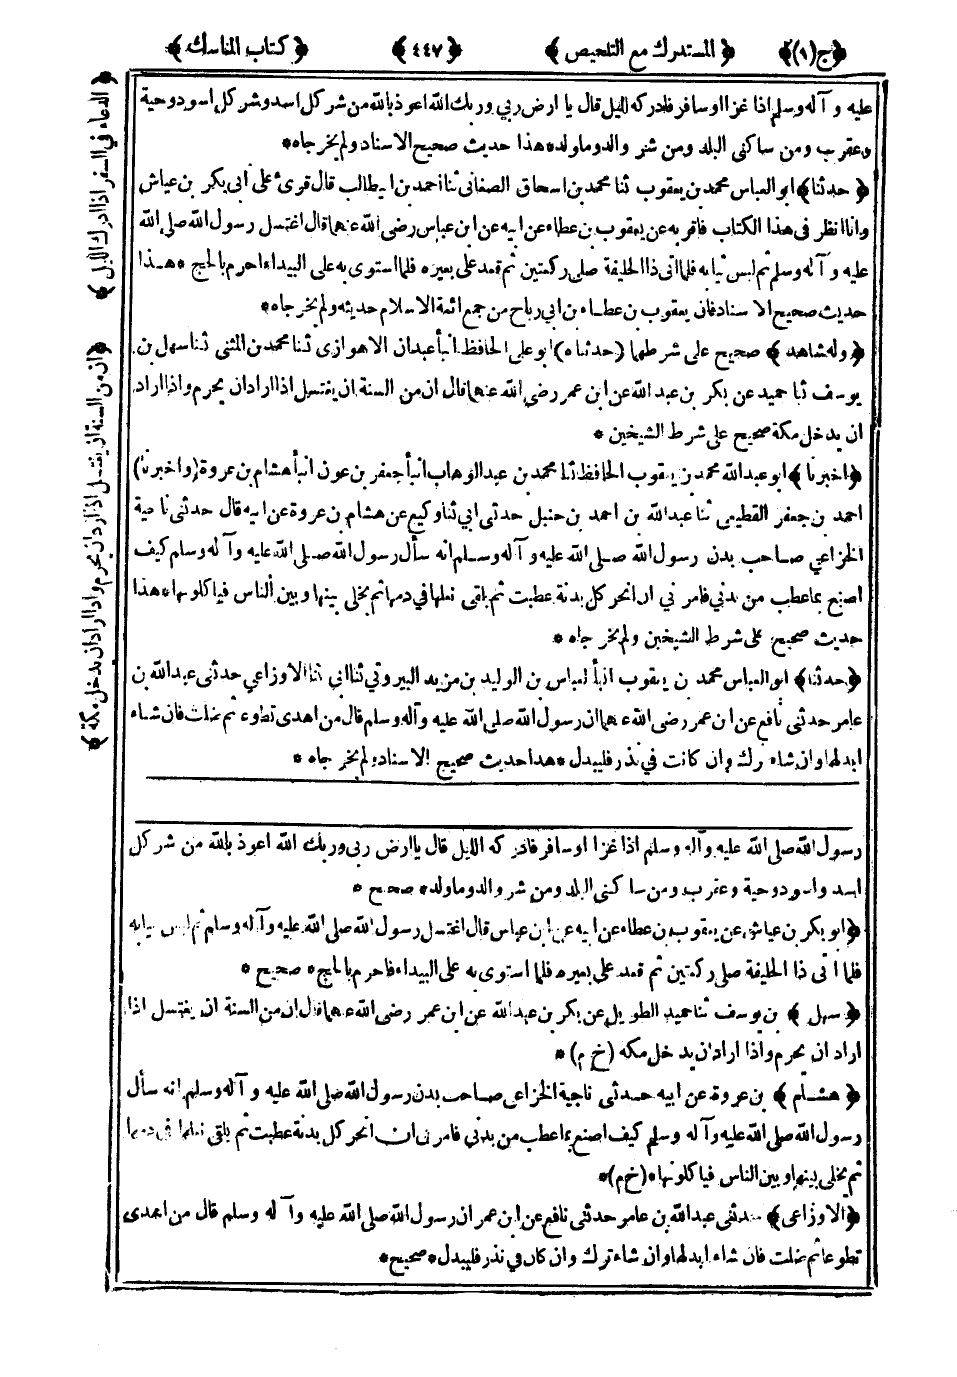 ﴿ج(١)﴾ ﴿المستدرك مع التلخيص﴾ ﴿٤٤٧﴾ ﴿كتاب المناسك﴾
عليه وآله وسلم اذا غزا اوسافر فادركه الليل قال يا ارض ربي وربك الله اعوذ بالله من شر كل اسد وشر كل اسود وحية
وعقرب ومن ساكني البلد ومن شر والد وما ولد* هذا حديث صحيح الاسناد ولم يخرجاه*
﴿حدثنا﴾ ابو العباس محمد بن يعقوب ثنا محمد بن اسحاق الصغاني ثنا احمد بن ابي طالب قال قرئ على ابي بكر بن عياش
وانا انظر في هذا الكتاب فاقر به عن يعقوب بن عطاء عن ابيه عن ابن عباس رضي الله عنهما قال اغتسل رسول الله صلى الله
عليه وآله وسلم ثم لبس ثيابه فلما اتى ذا الحليفة صلى ركعتين ثم قعد على بعيره فلما استوى به على البيداء احرم بالحج* هذا
حديث صحيح الاسناد فان يعقوب بن عطاء بن ابي رباح ممن جمع ائمة الاسلام حديثه ولم يخرجاه*
﴿وله شاهد﴾ صحيح على شرطهما (حدثناه) ابو علي الحافظ انبأ عبدان الاهوازي ثنا محمد بن المثنى ثنا سهل بن
يوسف ثنا حميد عن بكر بن عبد الله عن ابن عمر رضي الله عنهما قال ان من السنة ان يغتسل اذا اراد ان يحرم واذا اراد
ان يدخل مكة صحيح على شرط الشيخين*
﴿اخبرنا﴾ ابو عبد الله محمد بن يعقوب الحافظ ثنا محمد بن عبد الوهاب انبأ جعفر بن عون انبأ هشام بن عروة (واخبرنا)
احمد بن جعفر القطيعي ثنا عبد الله بن احمد بن حنبل حدثني ابي ثنا وكيع عن هشام بن عروة عن ابيه قال حدثني ناجية
الخزاعي صاحب بدن رسول الله صلى الله عليه وآله وسلم انه سأل رسول الله صلى الله عليه وآله وسلم كيف
اصنع بما عطب من بدني فامرني ان انحر كل بدنة عطبت ثم يلقى نعلها في دمها ثم يخلى بينها وبين الناس فياكلونها* هذا
حديث صحيح على شرط الشيخين ولم يخرجاه*
﴿حدثنا﴾ ابو العباس محمد بن يعقوب انبأ العباس بن الوليد بن مزيد البيروتي ثنا ابي ثنا الاوزاعي حدثني عبد الله بن
عامر حدثني نافع عن ابن عمر رضي الله عنهما ان رسول الله صلى الله عليه وآله وسلم قال من اهدى تطوعا ثم ضلت فان شاء
ابدلها وان شاء ترك وان كانت في نذر فليبدل* هذا حديث صحيح الاسناد ولم يخرجاه*
رسول الله صلى الله عليه وآله وسلم اذا غزا اوسافر فادركه الليل قال يا ارض ربي وربك الله اعوذ بالله من شر كل
اسد واسود وحية وعقرب ومن ساكني البلد ومن شر والد وما ولد* صحيح*
﴿ابو بكر بن عياش﴾ عن يعقوب بن عطاء عن ابيه عن ابن عباس قال اغتسل رسول الله صلى الله عليه وآله وسلم ثم لبس ثيابه
فلما اتى ذا الحليفة صلى ركعتين ثم قعد على بعيره فلما استوى به على البيداء فاحرم بالحج* صحيح*
﴿سهل﴾ بن يوسف ثنا حميد الطويل عن بكر بن عبد الله عن ابن عمر رضي الله عنهما قال ان من السنة ان يغتسل اذا
اراد ان يحرم واذا اراد ان يدخل مكه (خ م)*
﴿هشام﴾ بن عروة عن ابيه حدثني ناجية الخزاعي صاحب بدن رسول الله صلى الله عليه وآله وسلم انه سأل
رسول الله صلى الله عليه وآله وسلم كيف اصنع بما عطب من بدني فامرني ان انحر كل بدنة عطبت ثم يلقى نعلها في دمها
ثم يخلى بينها وبين الناس فياكلونها* (خ م)*
﴿الاوزاعي﴾ حدثني عبد الله بن عامر حدثني نافع عن ابن عمر ان رسول الله صلى الله عليه وآله وسلم قال من اهدى
تطوعا ثم ضلت فان شاء ابدلها وان شاء ترك وان كان في نذر فليبدل* صحيح*
﴿الدعاء في السفر اذا ادرك الليل﴾
﴿ان من السنة ان يغتسل اذا اراد ان يحرم واذا اراد ان يدخل مكة﴾